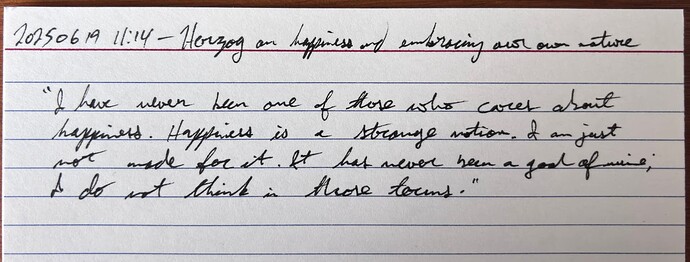 20250619 11:14 – Herzog on happiness and embracing our own nature
"I have never been one of those who cares about
happiness. Happiness is a strange notion. I am just
not made for it. It has never been a goal of mine;
I do not think in those terms."